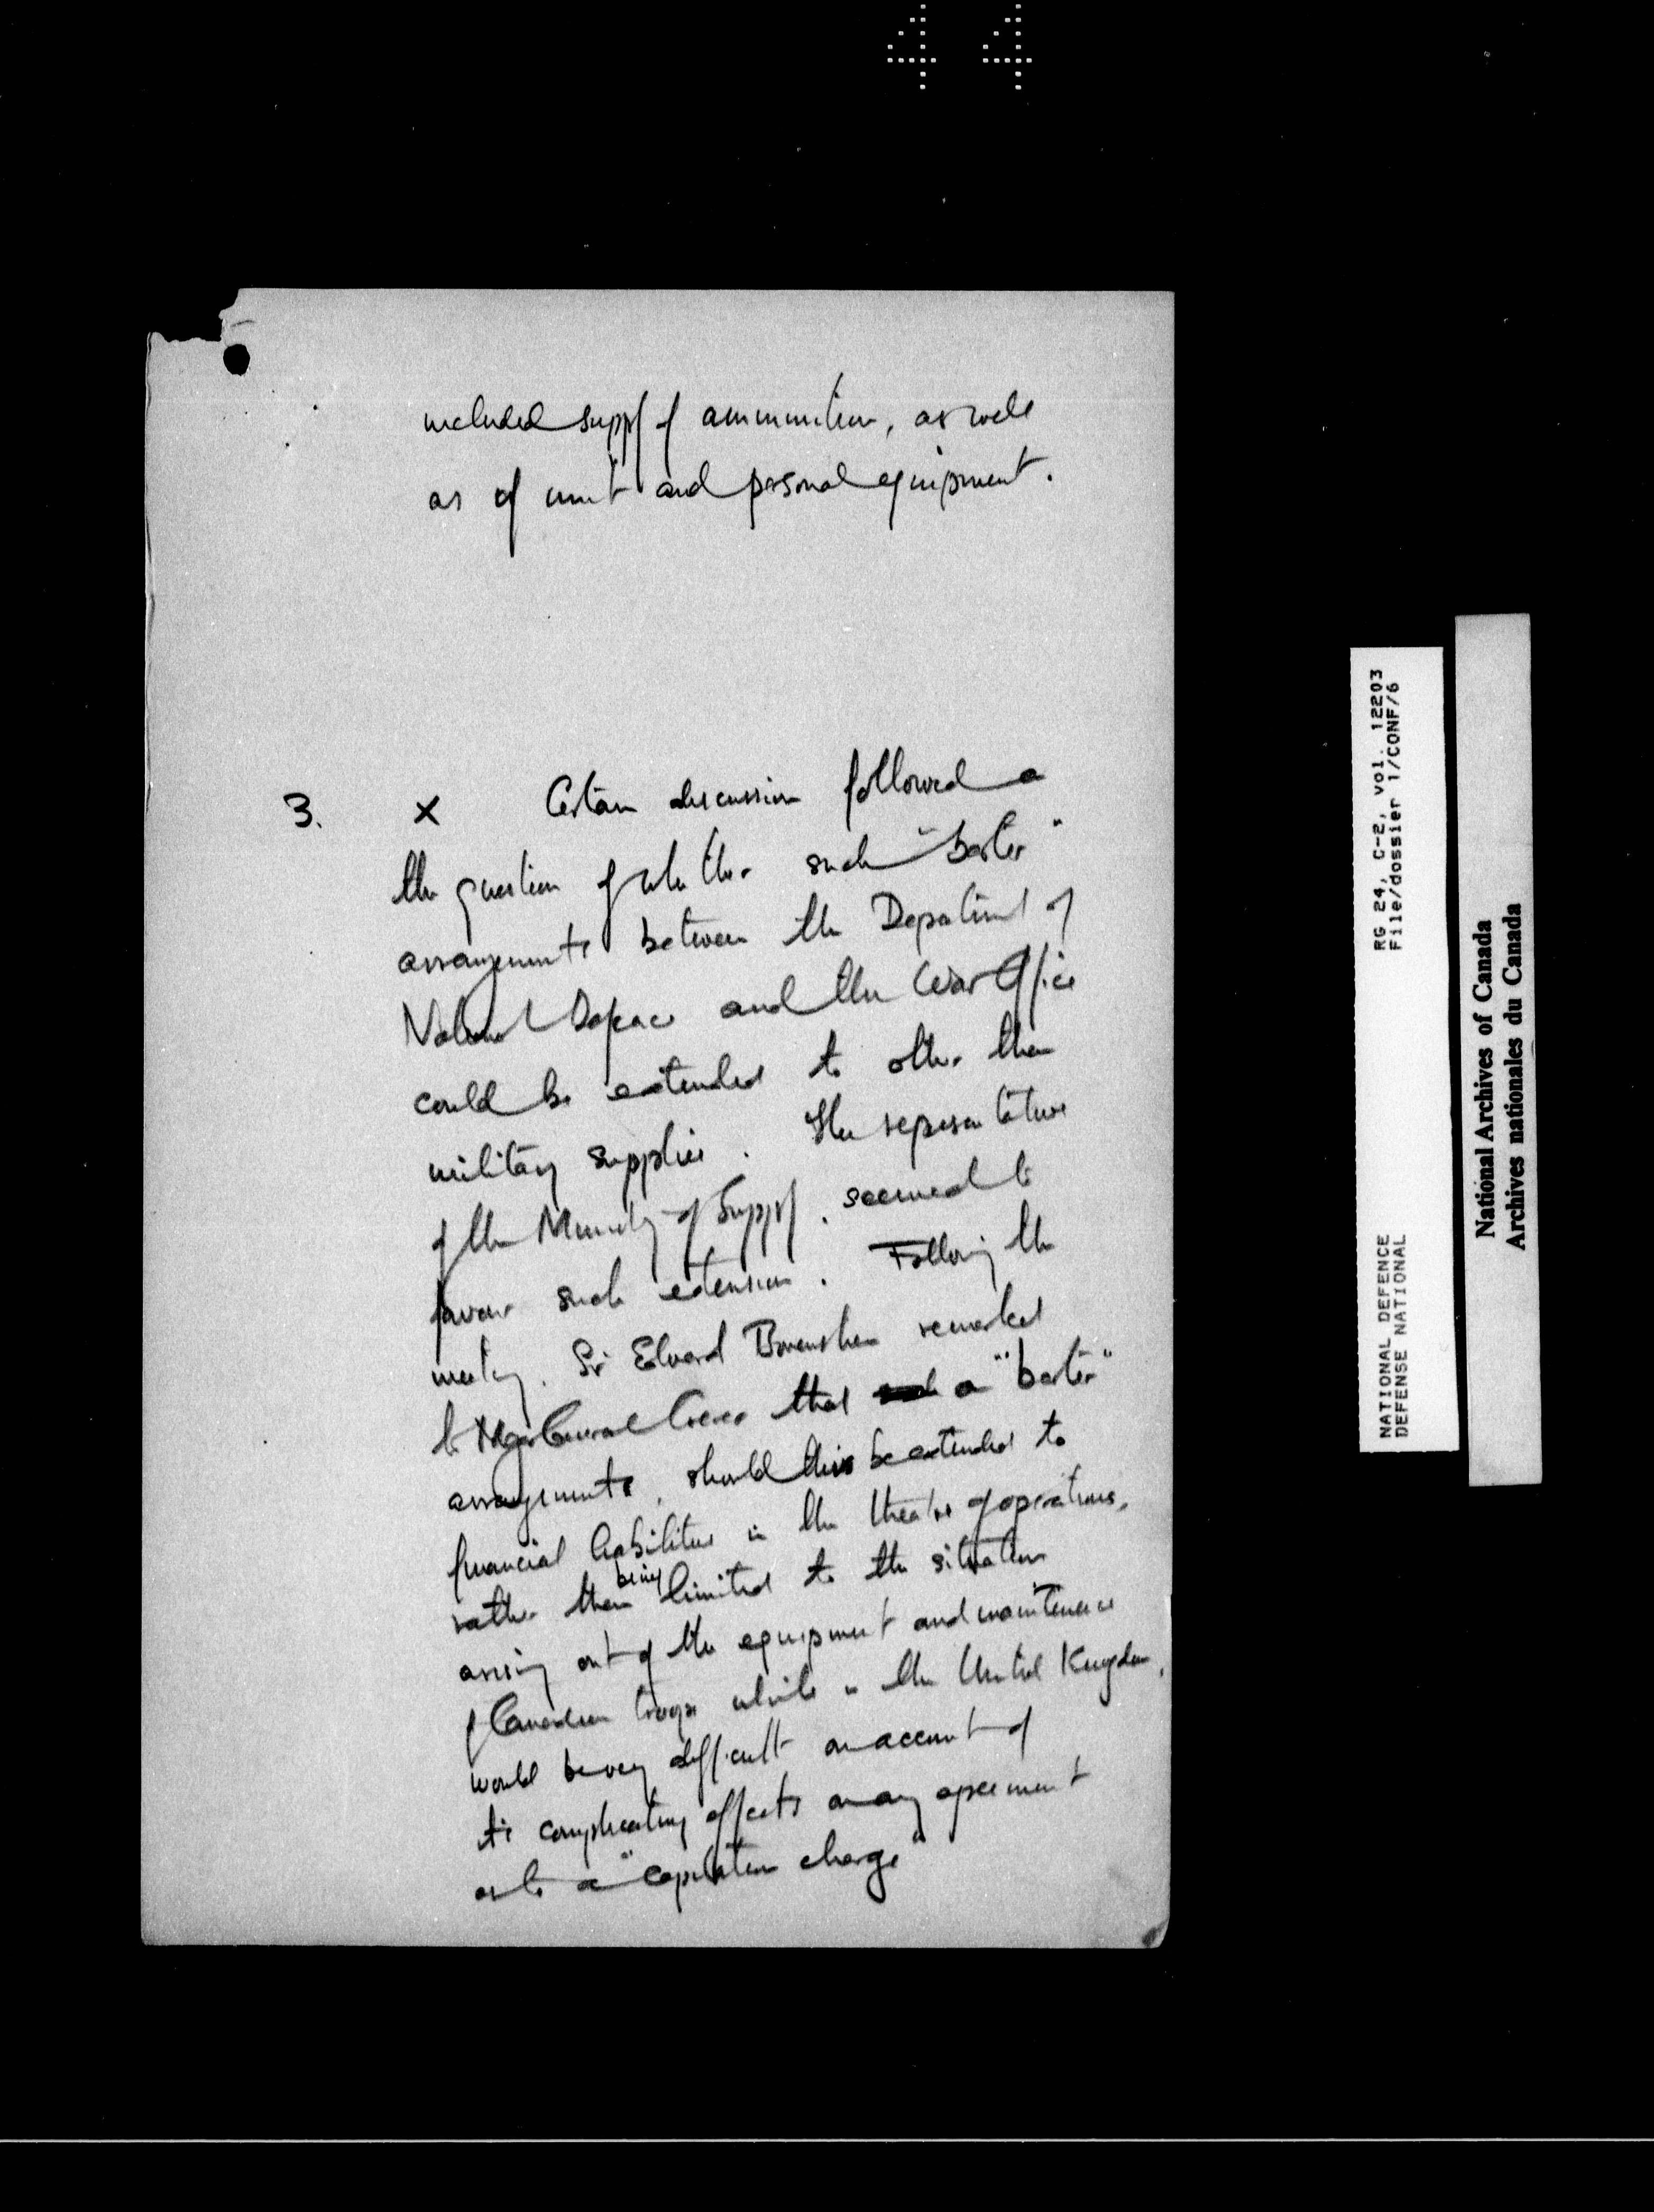 44
included supply of ammunition, as well
as of unit and personal equipment.
3. X Certain discussion followed on
the question of whether such "barter"
arrangements between the Department of
National Defence and the War Office
could be extended to other than
military supplies. The representatives
of the Ministry of Supply, seemed to
favour such extension. Following the
meeting, Sir Edward remarked
to Major General Crerar that a "barter"
arrangements, should this be extended to
financial liabilities in the theatre of operations,
rather than being limited to the situation
arising out of the equipment and maintenance
of Canadian troops while in the United Kingdom,
would be very difficult on account of
its complicating effects on any agreement
as to a "capitation charge"
NATIONAL DEFENCE RG 24, C-2, vol. 12203
DEFENSE NATIONAL File/dossier 1/CONF/6
National Archives of Canada
Archives nationales du Canada